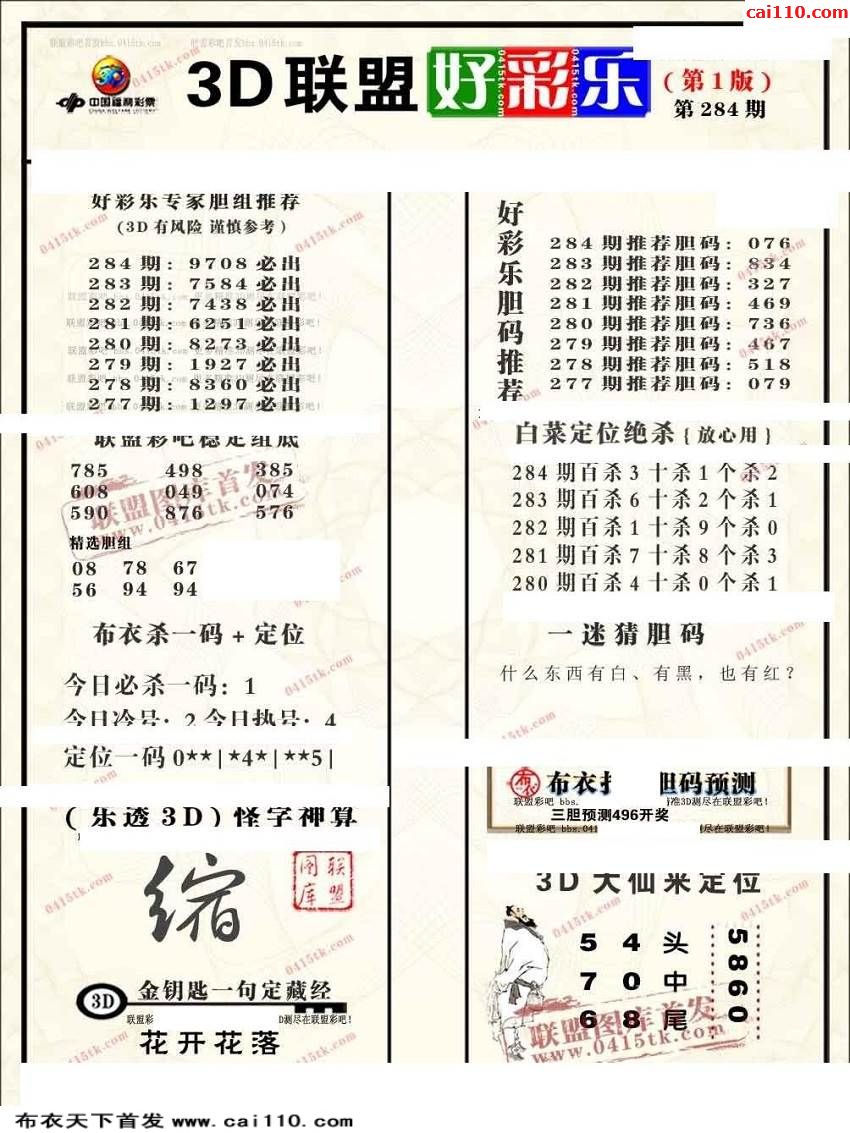 cai110.com
联盟彩吧首发bbs.0415tk.com
中国福利彩票
CHINA WELFARE LOTTERY
3D联盟好彩乐
0415tk.com
(第1版)
第284期
好彩乐专家胆组推荐
(3D有风险 谨慎参考)
284期:9708必出
283期:7584必出
282期:7438必出
281期:6251必出
280期:8273必出
279期:1927必出
278期:8360必出
277期:1297必出
联盟彩吧稳定组底
785 498 385
608 049 074
590 876 576
联盟图库首发
www.0415tk.com
精选胆组
08 78 67
56 94 94
布衣杀一码+定位
今日必杀一码:1
今日冷号:2 今日热号:4
定位一码0**|*4*|**5|
(乐透3D)怪字神算
缩
联盟图库
3D
金钥匙一句定藏经
联盟彩
D测尽在联盟彩吧!
花开花落
好彩乐胆码推荐
284期推荐胆码:076
283期推荐胆码:834
282期推荐胆码:327
281期推荐胆码:469
280期推荐胆码:736
279期推荐胆码:467
278期推荐胆码:518
277期推荐胆码:079
白菜定位绝杀{放心用}
284期百杀3十杀1个杀2
283期百杀6十杀2个杀1
282期百杀1十杀9个杀0
281期百杀7十杀8个杀3
280期百杀4十杀0个杀1
一迷猜胆码
什么东西有白、有黑,也有红?
布衣
胆码预测
联盟彩吧 bbs.
准3D测尽在联盟彩吧!
三胆预测496开奖
联盟彩吧 bbs.041
测尽在联盟彩吧!
3D大仙来定位
5 4 头
7 0 中
6 8 尾
5860
联盟图库首发
www.0415tk.com
布衣天下首发 www.cai110.com